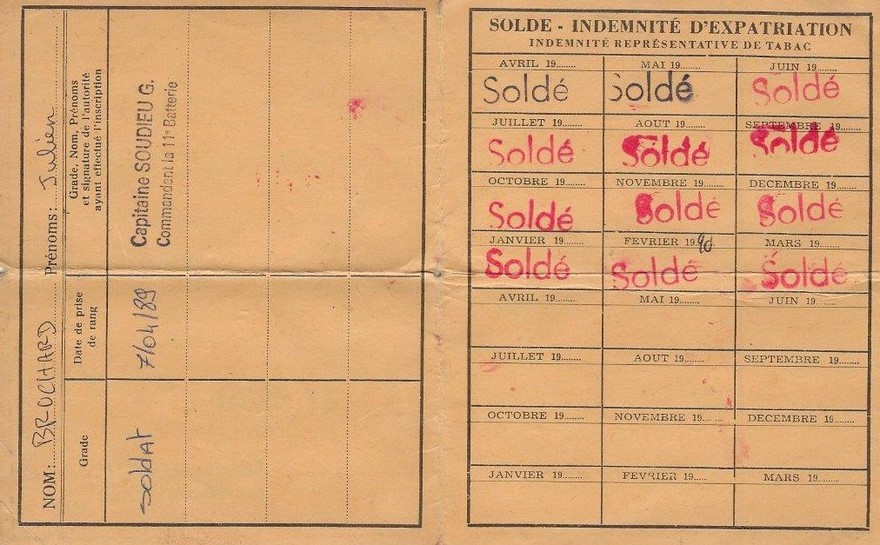 NOM: BROCHARD Prénoms: Julien
Grade
Date de prise
de rang
Grade, Nom, Prénoms
et signature de l'autorité
ayant effectué l'inscription
soldat
7/04/89
Capitaine SOUDIEU G.
Commandant la 11e Batterie
SOLDE - INDEMNITÉ D'EXPATRIATION
INDEMNITÉ REPRÉSENTATIVE DE TABAC
AVRIL 19........ MAI 19........ JUIN 19........
Soldé Soldé Soldé
JUILLET 19........ AOUT 19........ SEPTEMBRE 19........
Soldé Soldé Soldé
OCTOBRE 19........ NOVEMBRE 19........ DECEMBRE 19........
Soldé Soldé Soldé
JANVIER 19........ FEVRIER 1990 MARS 19........
Soldé Soldé Soldé
AVRIL 19........ MAI 19........ JUIN 19........
JUILLET 19........ AOUT 19........ SEPTEMBRE 19........
OCTOBRE 19........ NOVEMBRE 19........ DECEMBRE 19........
JANVIER 19........ FEVRIER 19........ MARS 19........